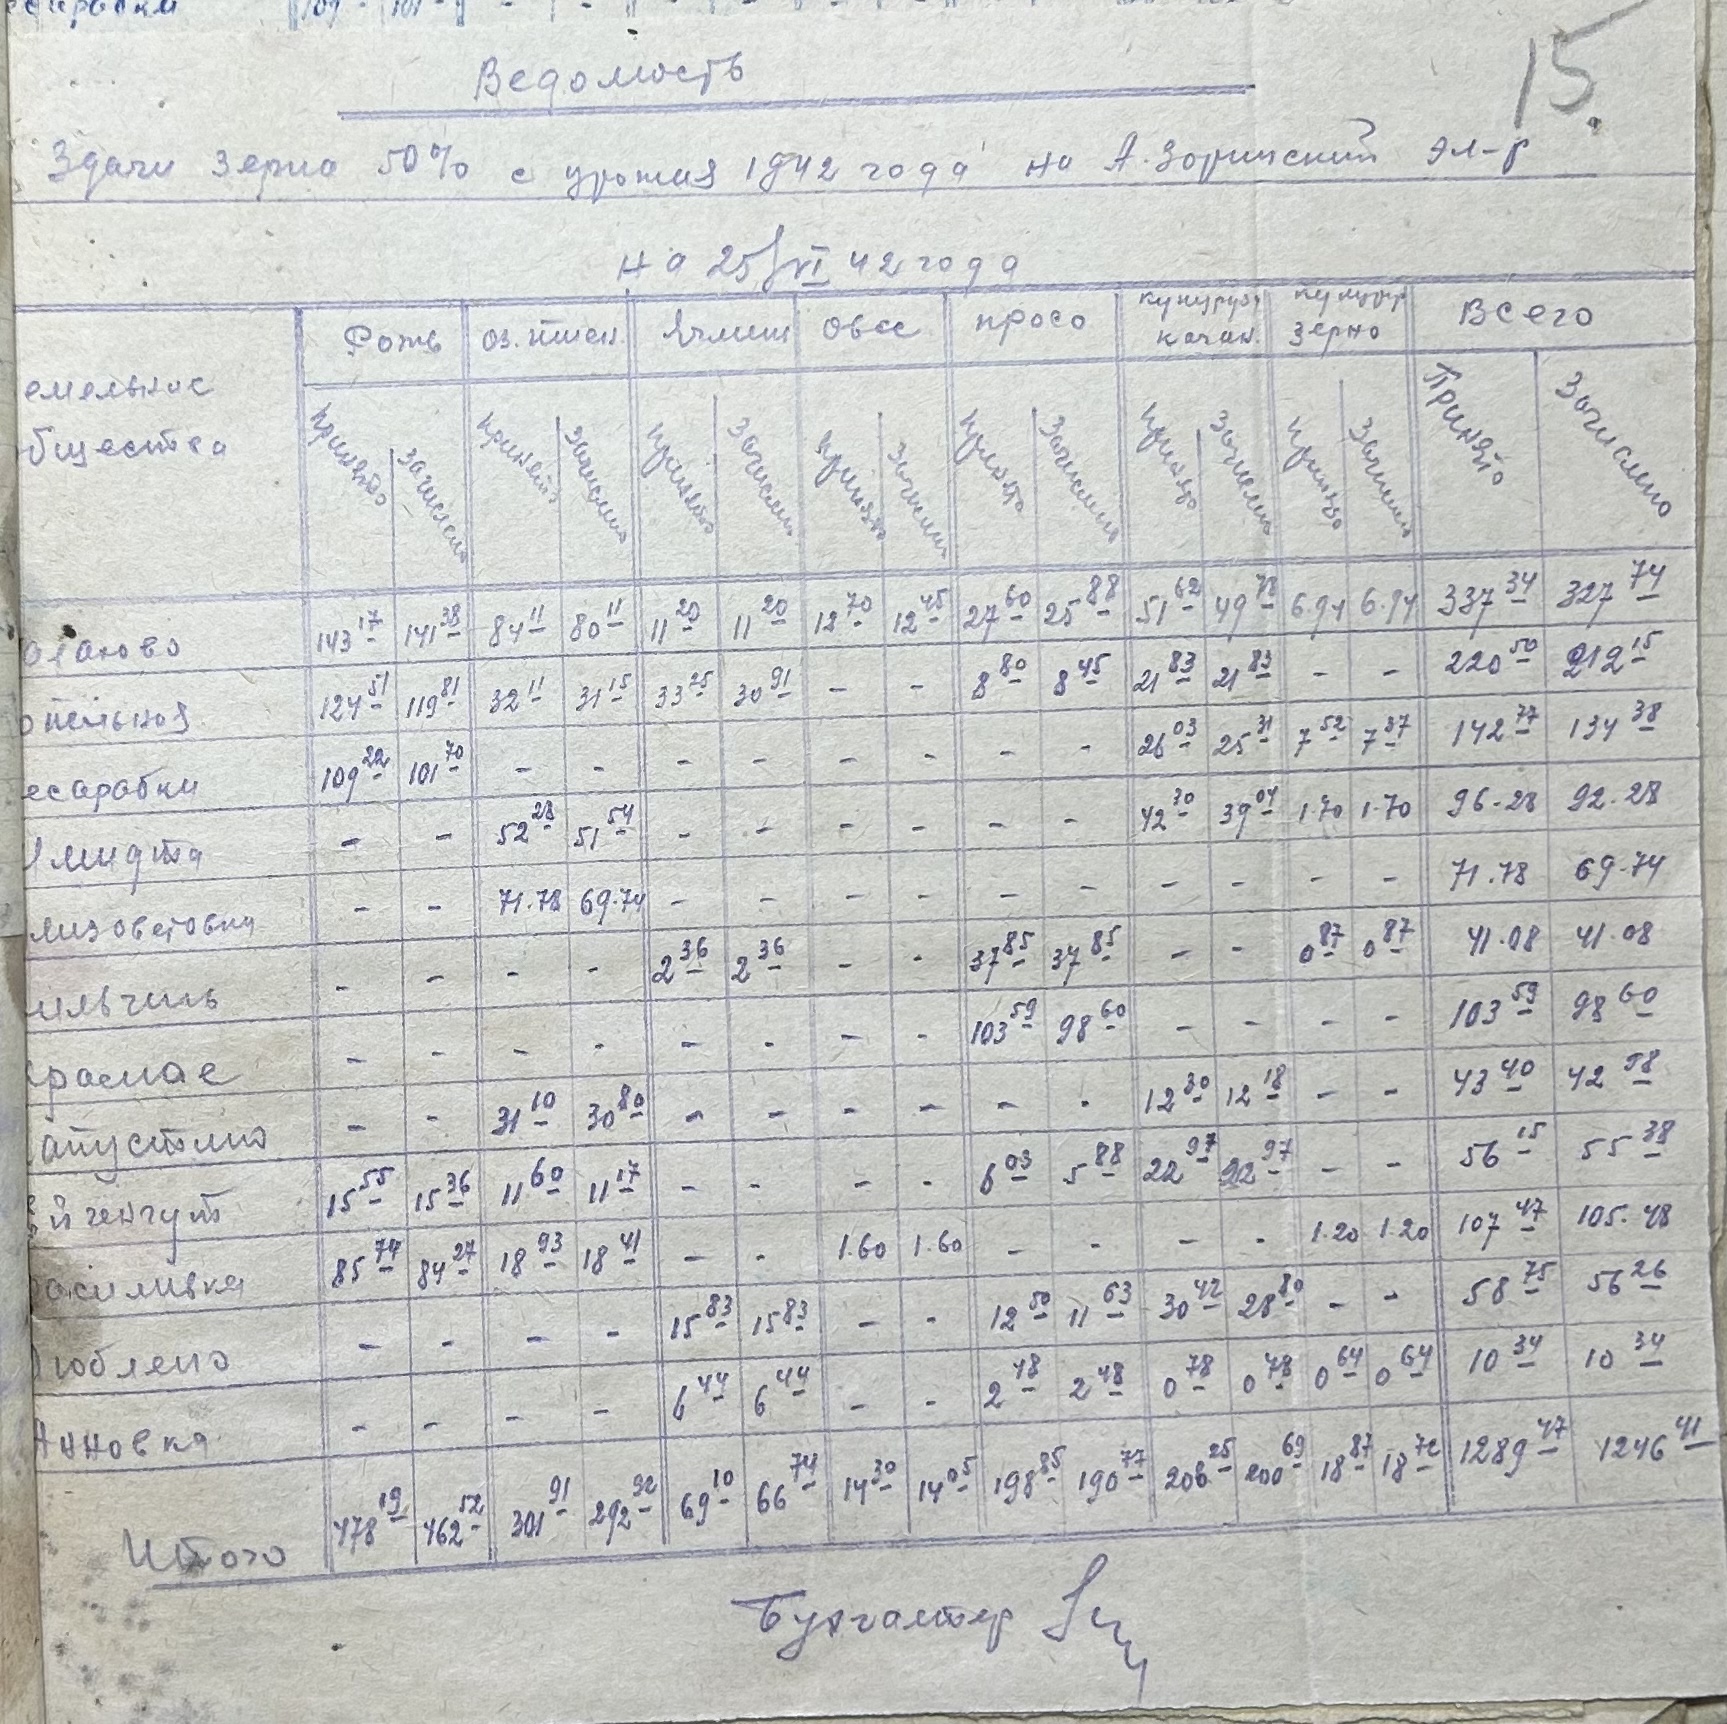 15.
Ведомость
Здачи зерна 50% с урожая 1942 года на А. Зоринский эл-р
на 25/VI 42 года
емельние общества | Рожь | оз. пшен. | Ячмин | овес | просо | кукуруз качан. | кукуруз зерно | Всего
принято | зачислено | принято | зачислено | принято | зачислено | принято | зачислено | принято | зачислено | принято | зачислено | принято | зачислено | Принято | Зачислено
143 17 | 141 38 | 84 11 | 80 11 | 11 20 | 11 20 | 12 70 | 12 45 | 27 60 | 25 88 | 51 62 | 49 78 | 6.94 | 6.94 | 337 34 | 327 74
опельная | 124 51 | 119 81 | 32 11 | 31 15 | 33 25 | 30 91 | - | - | 8 80 | 8 45 | 21 83 | 21 83 | - | - | 220 50 | 212 15
есарабки | 109 22 | 101 70 | - | - | - | - | - | - | - | - | 26 03 | 25 31 | 7 52 | 7 37 | 142 77 | 134 38
линдта | - | - | 52 28 | 51 54 | - | - | - | - | - | - | 42 30 | 39 04 | 1.70 | 1.70 | 96.28 | 92.28
лизоветовка | - | - | 71.78 | 69.74 | - | - | - | - | - | - | - | - | - | - | 71.78 | 69.74
ильчинь | - | - | - | - | 2 36 | 2 36 | - | - | 37 85 | 37 85 | - | - | 0 87 | 0 87 | 41.08 | 41.08
- | - | - | - | - | - | - | - | 103 59 | 98 60 | - | - | - | - | 103 59 | 98 60
апустино | - | - | 31 10 | 30 80 | - | - | - | - | - | - | 12 30 | 12 18 | - | - | 43 40 | 42 98
йгенгут | 15 55 | 15 36 | 11 60 | 11 17 | - | - | - | - | 6 03 | 5 88 | 22 97 | 22 97 | - | - | 56 15 | 55 38
асиливка | 85 74 | 84 27 | 18 93 | 18 41 | - | - | 1.60 | 1.60 | - | - | - | - | 1.20 | 1.20 | 107 47 | 105.48
юблено | - | - | - | - | 15 83 | 15 83 | - | - | 12 50 | 11 63 | 30 42 | 28 80 | - | - | 58 75 | 56 26
Анновка | - | - | - | - | 6 44 | 6 44 | - | - | 2 48 | 2 48 | 0 78 | 0 78 | 0 64 | 0 64 | 10 34 | 10 34
Итого | 478 19 | 462 52 | 301 91 | 292 92 | 69 10 | 66 74 | 14 30 | 14 05 | 198 85 | 190 77 | 208 25 | 200 69 | 18 87 | 18 72 | 1289 47 | 1246 41
Бухгалтер